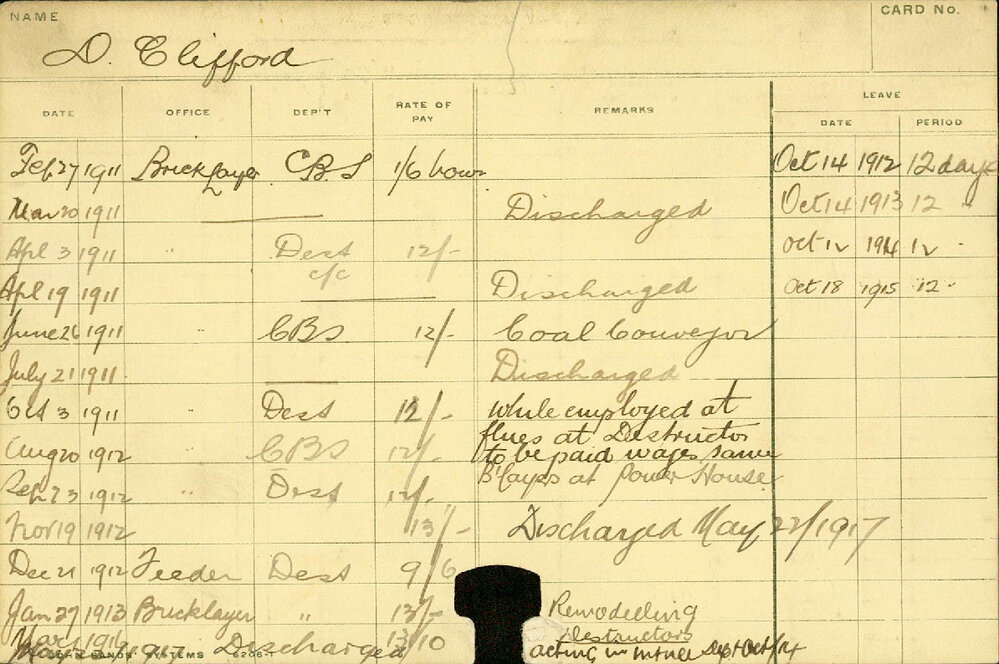 NAME
CARD No.
D. Clifford
DATE OFFICE DEP'T RATE OF PAY REMARKS LEAVE
DATE PERIOD
Feb 27 1911 Bricklayer C.B.S 1/6 hour Oct 14 1912 12 days
Mar 20 1911 Discharged Oct 14 1913 12 "
Apl 3 1911 " Dest 12/- Oct 12 1914 12 "
c/c
Apl 19 1911 Discharged Oct 18 1915 12 "
June 26 1911 " CBS 12/- Coal Conveyor
July 21 1911 Discharged
Oct 3 1911 Dest 12/- while employed at
flues at Destructor
Aug 20 1912 " CBS 12/- to be paid wages same
Sep 23 1912 " Dest 12/- B'layers at Power House
Nov 19 1912 13/- Discharged May 22/1917
Dec 21 1912 Feeder Dest 9/6
Jan 27 1913 Bricklayer " 13/- Remodelling
Destructors
Mar 1916 13/10
1917 Discharged acting in Sept Oct/14
SYSTEMS